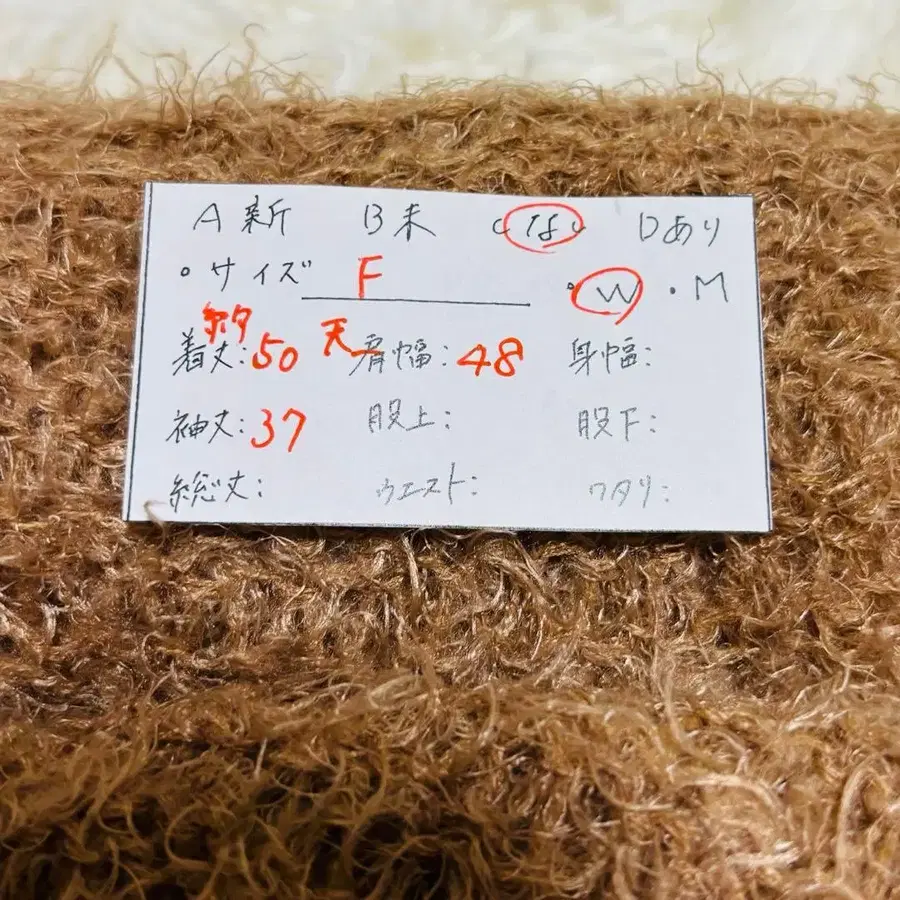 A 新 B 未 C なし D あり
・サイズ F ・W ・M
着丈:50 肩幅:48 身幅:
袖丈:37 股上: 股下:
総丈: ウエスト: ワタリ: